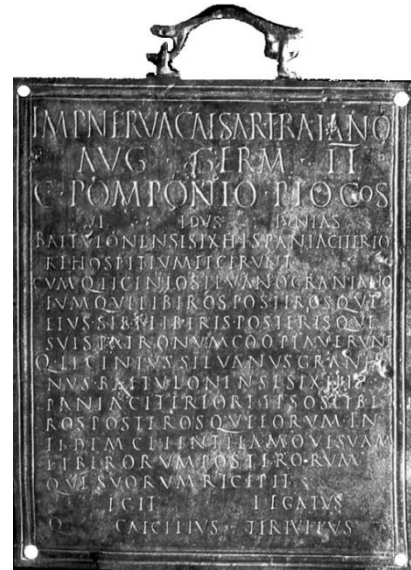 IMPNERVACAESARTRAIANO
AVG · GERM · II
C·POMPONIO·PIO COS
VI IDVS IVNIAS
BAETVLONENSES EX HISPANIA CITERIO
RE HOSPITIVM FECERVNT
CVM Q LICINIO SILVANO GRANIANO
EVMQVE LIBEROS POSTEROSQVE
EIVS SIBI LIBERIS POSTERISQVE
SVIS PATRONVM COOPTAVERVNT
Q LICINIVS SILVANVS GRANIA
NVS BAETVLONENSES EX HIS
PANIA CITERIORE IPSOS LIBE
ROS POSTEROSQVE EORVM IN
FIDEM CLIENTELAMQVE SVAM
LIBERORVM POSTERO·RVM
QVE SVORVM RECEPIT
EGIT LEGATVS
Q CAECILIVS TERTVLLVS